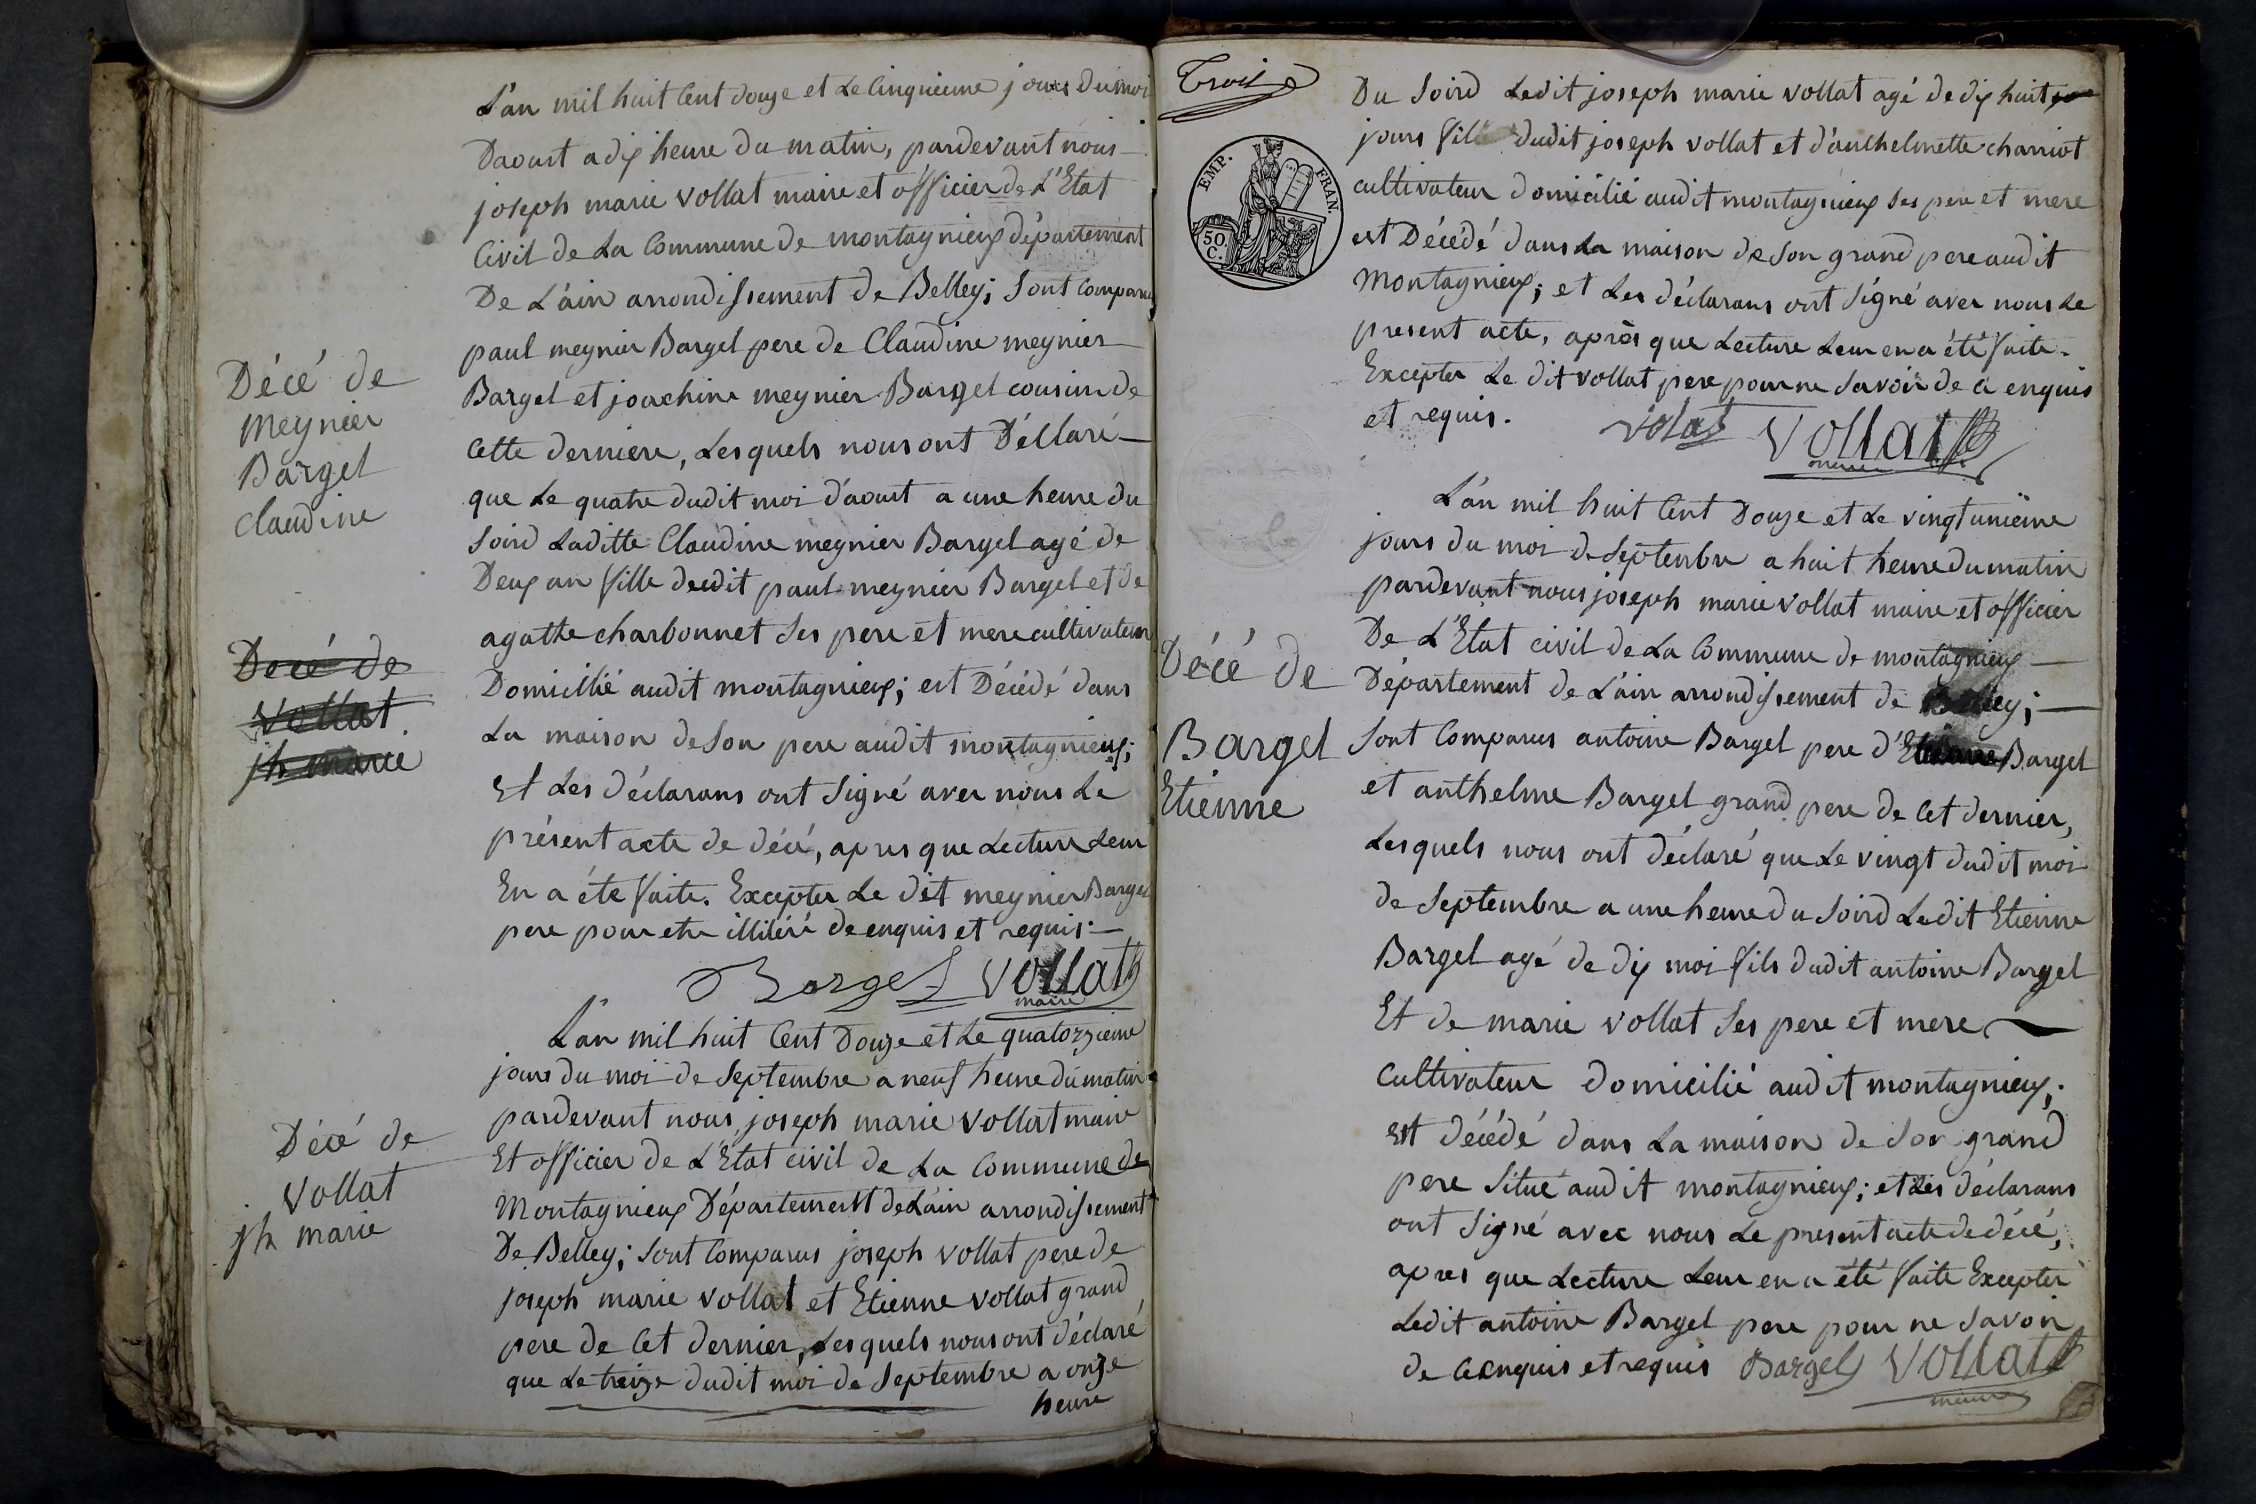 L'an mil huit Cent douze et Le Cinquieme jours du moi
Daoust a dix heure du matin, pardevant nous
joseph marie vollat maire et officier de L'Etat
Civil de La Commune de montagnieux département
De L'ain arrondissement de Belley; Sont Comparu
paul meynier Bargel pere de Claudine meynier
Bargel et joachim meynier Bargel cousin de
Cette derniere, Lesquels nous ont Déclaré
que Le quatre dudit moi d'aoust a une heure du
Soird Laditte Claudine meynier Bargel agé de
Deux an fille deudit paul meynier Bargel et de
agathe charbonnet Ses pere et mere cultivateur
Domicillié audit montagnieux; est Décédé dans
La maison de Son pere audit montagnieux;
Et Les déclarans ont Signé avec nous Le
présent acte de décé, apres que Lecture Leur
En a été faite. Excepter Le dit meynier Bargel
pere pour etre illitéré de enquis et requis.
Bargel vollat
maire
L'an mil huit Cent Douze et Le quatorzieme
jours du moi de Septembre a neuf heure du matin
pardevant nous, joseph marie vollat maire
Et officier de L'Etat civil de La Commune de
Montagnieux Département de L'ain arrondissement
De Belley; Sont Comparus joseph vollat pere de
joseph marie vollat et Etienne vollat grand
pere de Cet dernier, Lesquels nous ont déclaré
que Le treize dudit moi de Septembre a onze
heure
Décé de
Meynier
Bargel
Claudine
Décé de
Vollat
jh marie
Décé de
Vollat
jh marie
Trois
EMP. FRAN.
50 C.
Du Soird Ledit joseph marie vollat agé de dix huit
jours fils dudit joseph vollat et d'anthelmette charriot
cultivateur domicilié audit montagnieux Ses pere et mere
est Décédé dans La maison de Son grand pere audit
Montagnieux; et Les déclarans ont Signé avec nous Le
present acte, après que Lecture Leur en a été faite.
Excepter Le dit vollat pere pour ne Savoir de a enquis
et requis.
volat Vollat
maire
L'an mil huit Cent Douze et Le vingt unième
jours du moi de Septembre a huit heure du matin
pardevant nous joseph marie vollat maire et officier
De L'Etat civil de La Commune de montagnieux
Département de L'ain arrondissement de Belley;
Sont Comparus antoine Bargel pere d'Etienne Bargel
et anthelme Bargel grand pere de Cet dernier,
Lesquels nous ont déclaré que Le vingt dudit moi
de Septembre a une heure du Soird Ledit Etienne
Bargel agé de dix moi fils dudit antoine Bargel
Et de marie vollat Ses pere et mere
Cultivateur domicilié audit montagnieux;
est décédé dans La maison de Son grand
pere Situé audit montagnieux; et Les déclarans
ont Signé avec nous Le present acte de décé,
apres que Lecture Leur en a été faite Excepter
Ledit antoine Bargel pere pour ne Savoir
de Ce enquis et requis Bargel Vollat
maire
Décé de
Bargel
Etienne